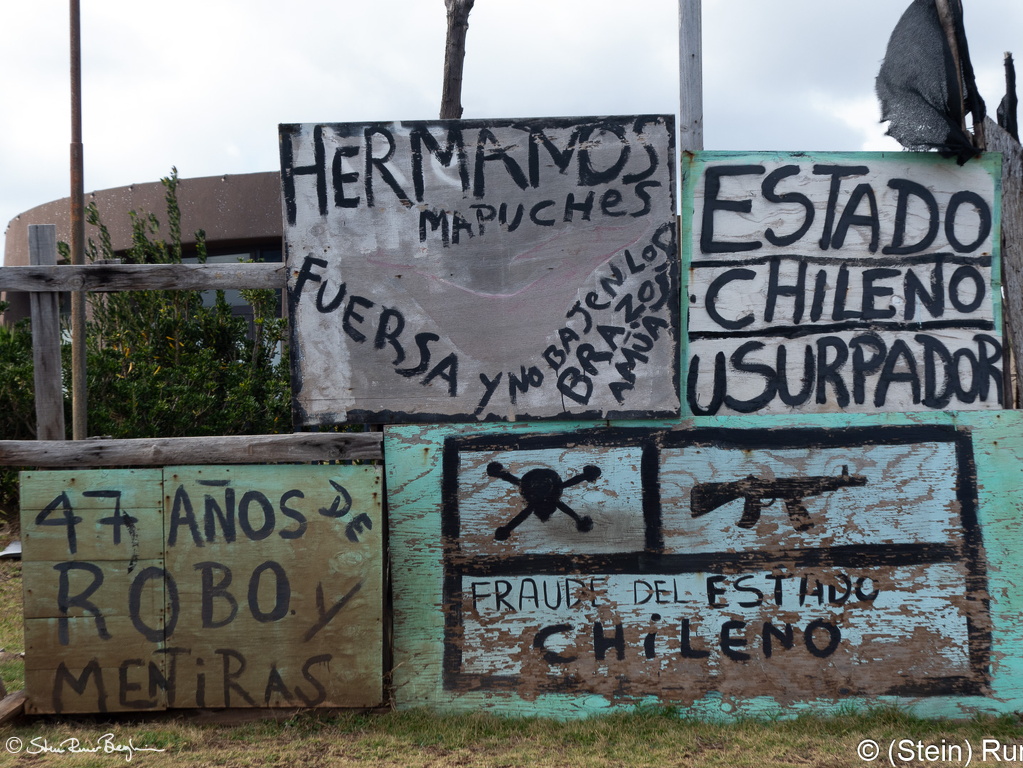 HERMANOS
MAPUCHES
FUERSA Y NO BAJEN LOS
BRAZOS
ESTADO
CHILENO
USURPADOR
47 AÑOS DE
ROBO Y
MENTIRAS
FRAUDE DEL ESTADO
CHILENO
© (Stein) Rur